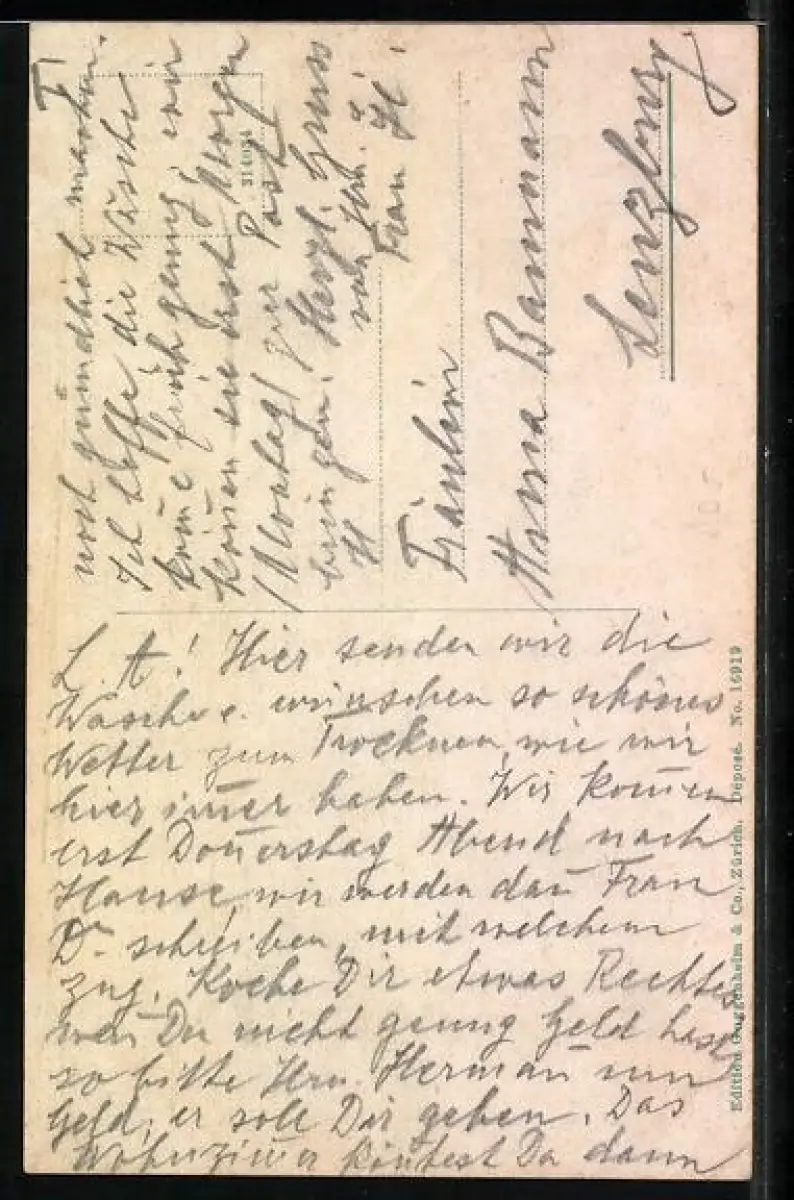 L. A! Hier senden wir die
Wäsche u. wünschen so schönes
Wetter zum Trocknen, wie wir
hier im̅er haben. Wir kom̅en
erst Don̅erstag Abend nach
Hause, wir werden dan̅ Frau
Dr. schreiben, mit welchem
Zug. Koche Dir etwas Rechtes
wen̅ Du nicht genug Geld hast
so bitte Hrn. Herman̅ um
Geld, er soll Dir geben. Das
Wohnzim̅er kön̅test Du dann
noch gründlich machen.
Ich hoffe, die Wäsche
kom̅e früh genug, wir
kön̅en sie erst Morgen
(Montag) zur Post
bringen. Herzl. Gruss
von Hrn. &
Frau H.
Fräulein
Anna Baumann
Lenzburg
Edition Guggenheim & Co., Zürich. Déposé. No. 16919